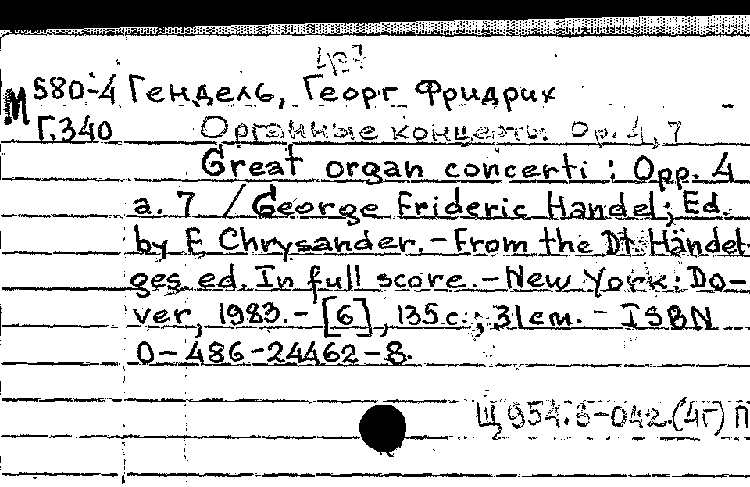 4р7
М 580-4 Гендель, Георг Фридрих
Г.340 Органные концерты. Op. 4, 7
Great organ concerti : Opp. 4
a. 7 / George Frideric Handel; Ed.
by F. Chrysander. - From the Dt. Händel
ges. ed. In full score. - New York: Do-
ver, 1983. - [6], 135 с.; 31 cm. - ISBN
0-486-24462-8.
Щ 954.3-042.(4г) П